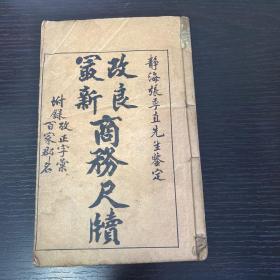 靜海張季直先生鑒定
改良
最新
商務尺牘
附錄攷正字彙
百家郡名